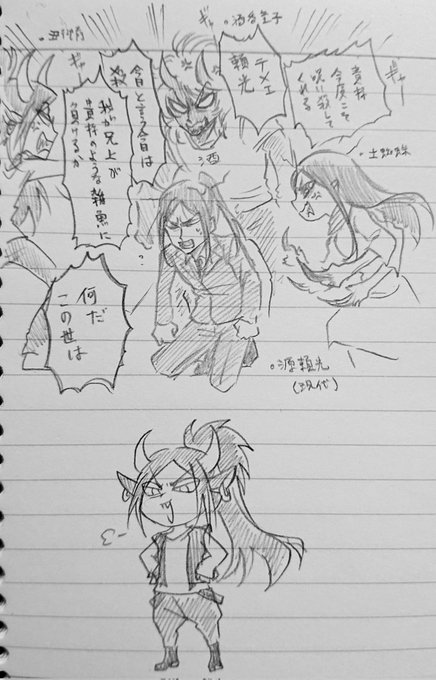 ギャー
貴様
今度こそ
呪い殺して
くれる
・土蜘蛛
・酒呑童子
ギャー
テメェ
頼光
酒
今日と言う今日は
ギャー
我が兄上が
貴様のような雑魚に
負けるか
何だ
この世は
・源頼光
(現代)